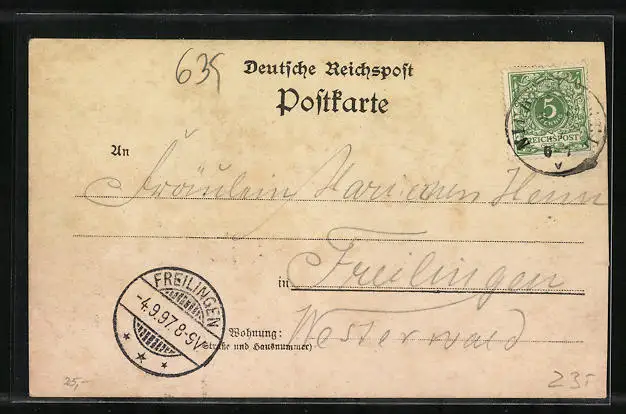 635
Deutsche Reichspost
Postkarte
5
REICHSPOST
An
Fräulein
in Freilingen
FREILINGEN
-4.9.97. 8-9V
Wohnung: Westerwald
(Straße und Hausnummer)
25,-
235